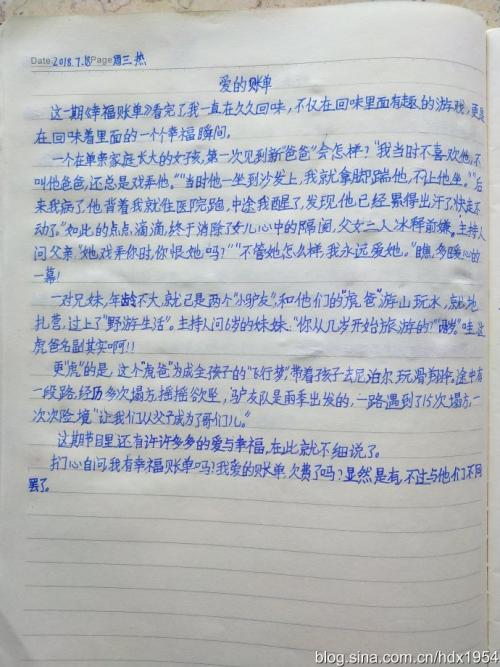 Date 2018.7.18 Page 周三 热
爱的账单
这一期《幸福账单》看完了我一直在久久回味,不仅在回味里面有趣的游戏,更是
在回味着里面的一个个幸福瞬间。
一个在单亲家庭长大的女孩,第一次见到新“爸爸”会怎样?“我当时不喜欢他,不
叫他爸爸,还总是戏弄他。”“当时他一坐到沙发上,我就拿脚踹他,不让他坐。”“后
来我病了,他背着我就往医院跑,中途我醒了,发现他已经累得出汗了,快走不
动了。”如此的点点滴滴,终于消除了女儿心中的隔阂,父女二人冰释前嫌。主持人
问父亲:“她戏弄你时,你恨她吗?”“不管她怎么样,我永远爱她。”瞧,多暖心的
一幕!
一对兄妹,年龄不大,就已是两个“小驴友”,和他们的“虎爸”游山玩水,就地
扎营,过上了“野游生活”。主持人问6岁的妹妹:“你从几岁开始旅游的?”“两岁。”哇,这
虎爸名副其实啊!!
更“虎”的是,这个“虎爸”为成全孩子的“飞行梦”,带着了孩子去尼泊尔玩滑翔伞,途中有
一段路,经历多次塌方,摇摇欲坠,驴友队是雨季出发的,一路遇到了15次塌方,一
次次险境“让我们从父子成为了哥们儿。”
这期节目里还有许许多多的爱与幸福,在此就不细说了。
扪心自问,我有幸福账单吗?我爱的账单欠费了吗?显然是有,不过与他们不同
罢了。
blog.sina.com.cn/hdx1954